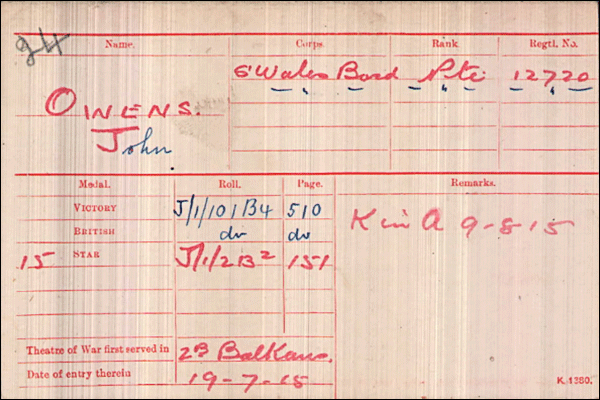 24
Name. Corps. Rank Regtl. No.
S Wales Bord Pte 12720
" " " "
OWENS.
John.
Medal. Roll. Page. Remarks.
VICTORY J/1/101 B4 510
BRITISH do do
15 STAR J/1/2 B2 151
K in A 9-8-15
Theatre of War first served in 2B Balkans.
Date of entry therein 19-7-15
K. 1380.